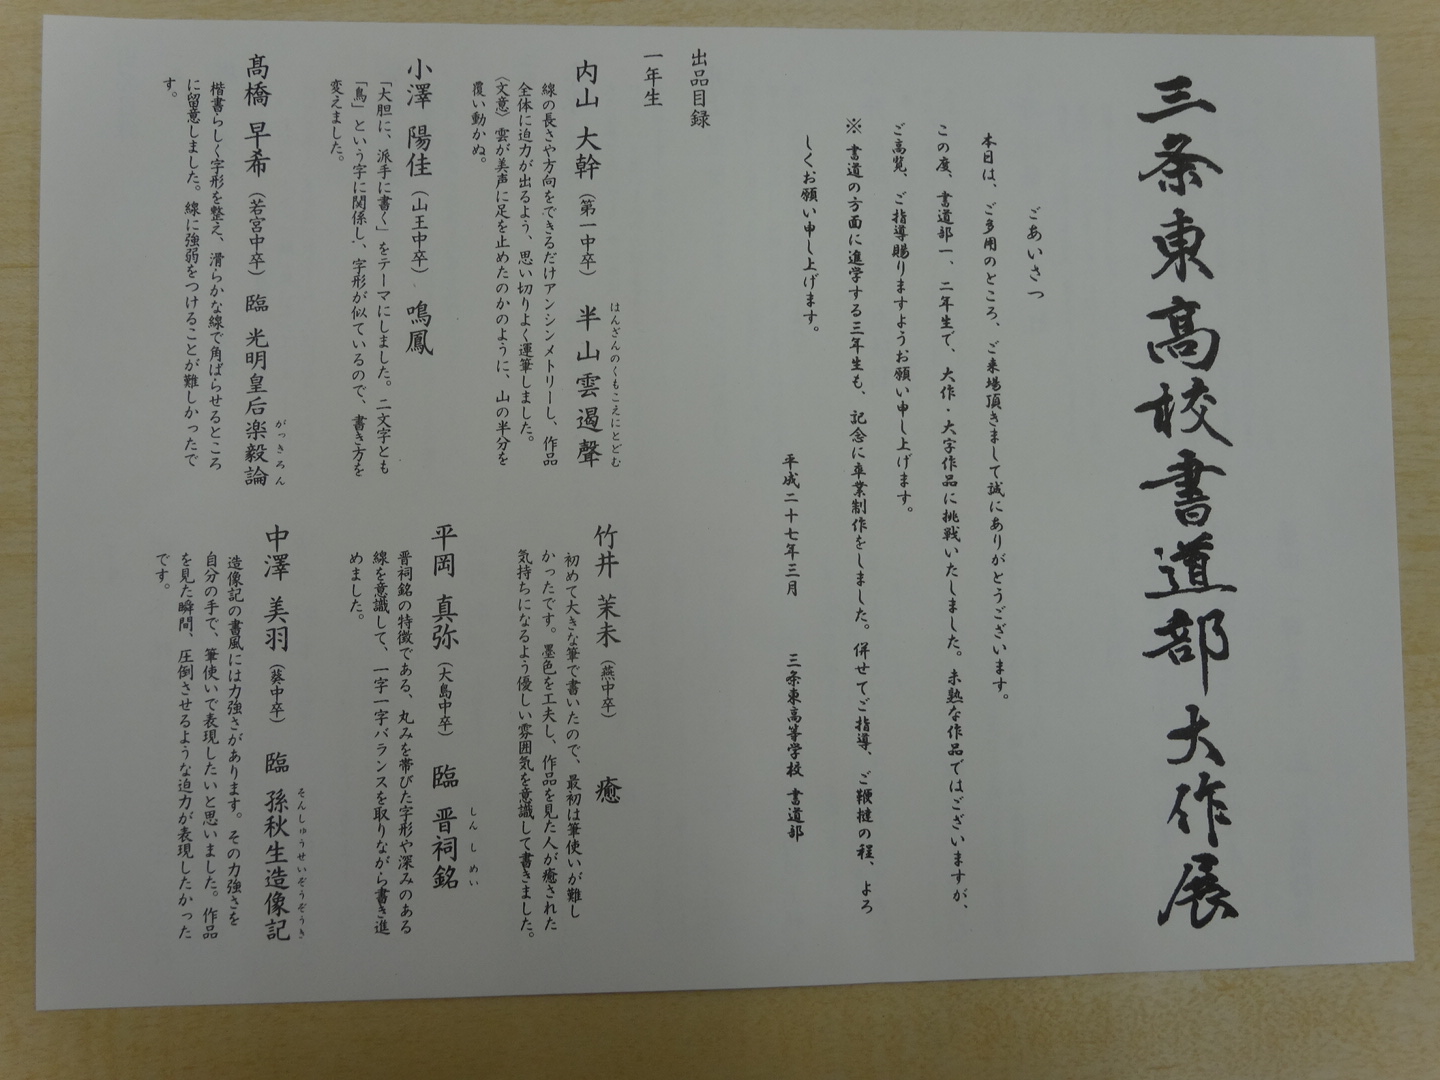 三条東高校書道部大作展
ごあいさつ
本日は、ご多用のところ、ご来場頂きまして誠にありがとうございます。
この度、書道部一、二年生で、大作・大字作品に挑戦いたしました。未熟な作品ではございますが、
ご高覧、ご指導賜りますようお願い申し上げます。
※ 書道の方面に進学する三年生も、記念に卒業制作をしました。併せてご指導、ご鞭撻の程、よろ
しくお願い申し上げます。
平成二十七年三月 三条東高等学校 書道部
出品目録
一年生
内山 大幹（第一中卒） 半山雲遏聲
はんざんのくもこえにとどむ
線の長さや方向をできるだけアンシンメトリーし、作品
全体に迫力が出るよう、思い切りよく運筆しました。
（文意）雲が美声に足を止めたのかのように、山の半分を
覆い動かぬ。
小澤 陽佳（山王中卒） 鳴鳳
「大胆に、派手に書く」をテーマにしました。二文字とも
「鳥」という字に関係し、字形が似ているので、書き方を
変えました。
髙橋 早希（若宮中卒） 臨 光明皇后楽毅論
がっきろん
楷書らしく字形を整え、滑らかな線で角ばらせるところ
に留意しました。線に強弱をつけることが難しかったで
す。
竹井 茉未（燕中卒） 癒
初めて大きな筆で書いたので、最初は筆使いが難し
かったです。墨色を工夫し、作品を見た人が癒された
気持ちになるよう優しい雰囲気を意識して書きました。
平岡 真弥（大島中卒） 臨 晋祠銘
しんしめい
晋祠銘の特徴である、丸みを帯びた字形や深みのある
線を意識して、一字一字バランスを取りながら書き進
めました。
中澤 美羽（葵中卒） 臨 孫秋生造像記
そんしゅうせいぞうぞうき
造像記の書風には力強さがあります。その力強さを
自分の手で、筆使いで表現したいと思いました。作品
を見た瞬間、圧倒させるような迫力が表現したかった
です。